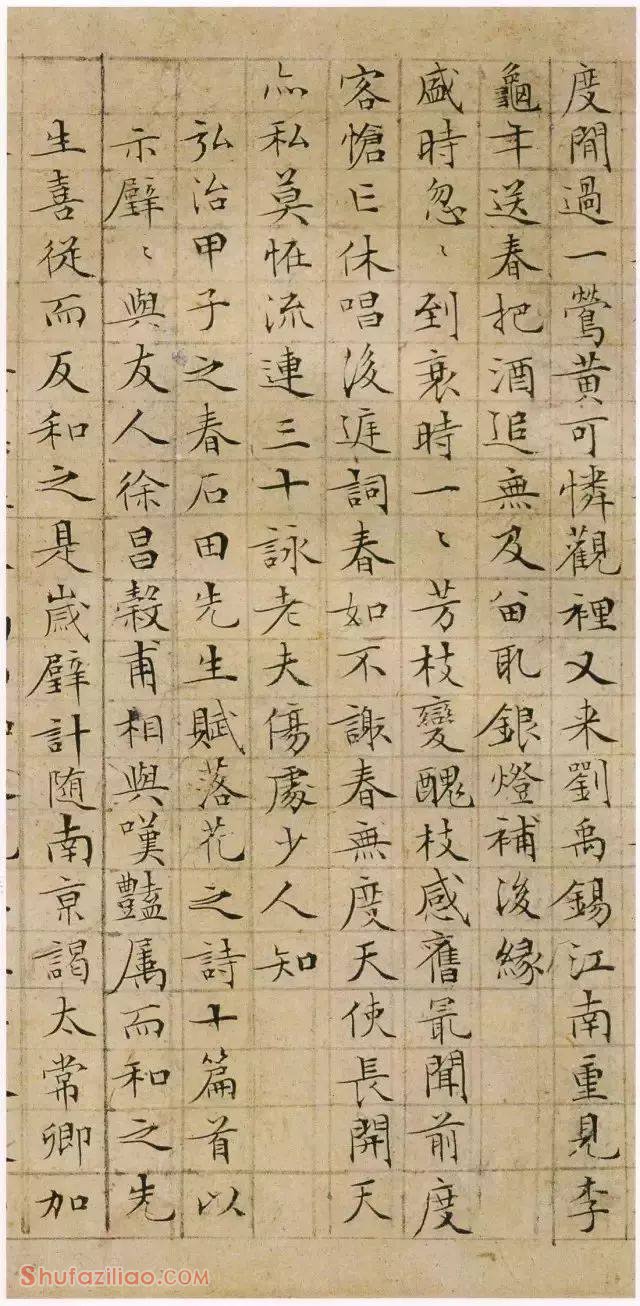 度閒過一鶯黃可憐觀裡又来劉禹錫江南重見李
龜年送春把酒追無及留取銀燈補後緣
盛時忽〻到衰時一〻芳枝變醜枝感舊最聞前度
客愴亡休唱後庭詞春如不謝春無度天使長開天
亦私莫恠流連三十詠老夫傷處少人知
弘治甲子之春石田先生賦落花之詩十篇首以
示璧〻與友人徐昌穀甫相與嘆豔属而和之先
生喜從而反和之是歲璧計随南京謁太常卿加
Shufaziliao.com